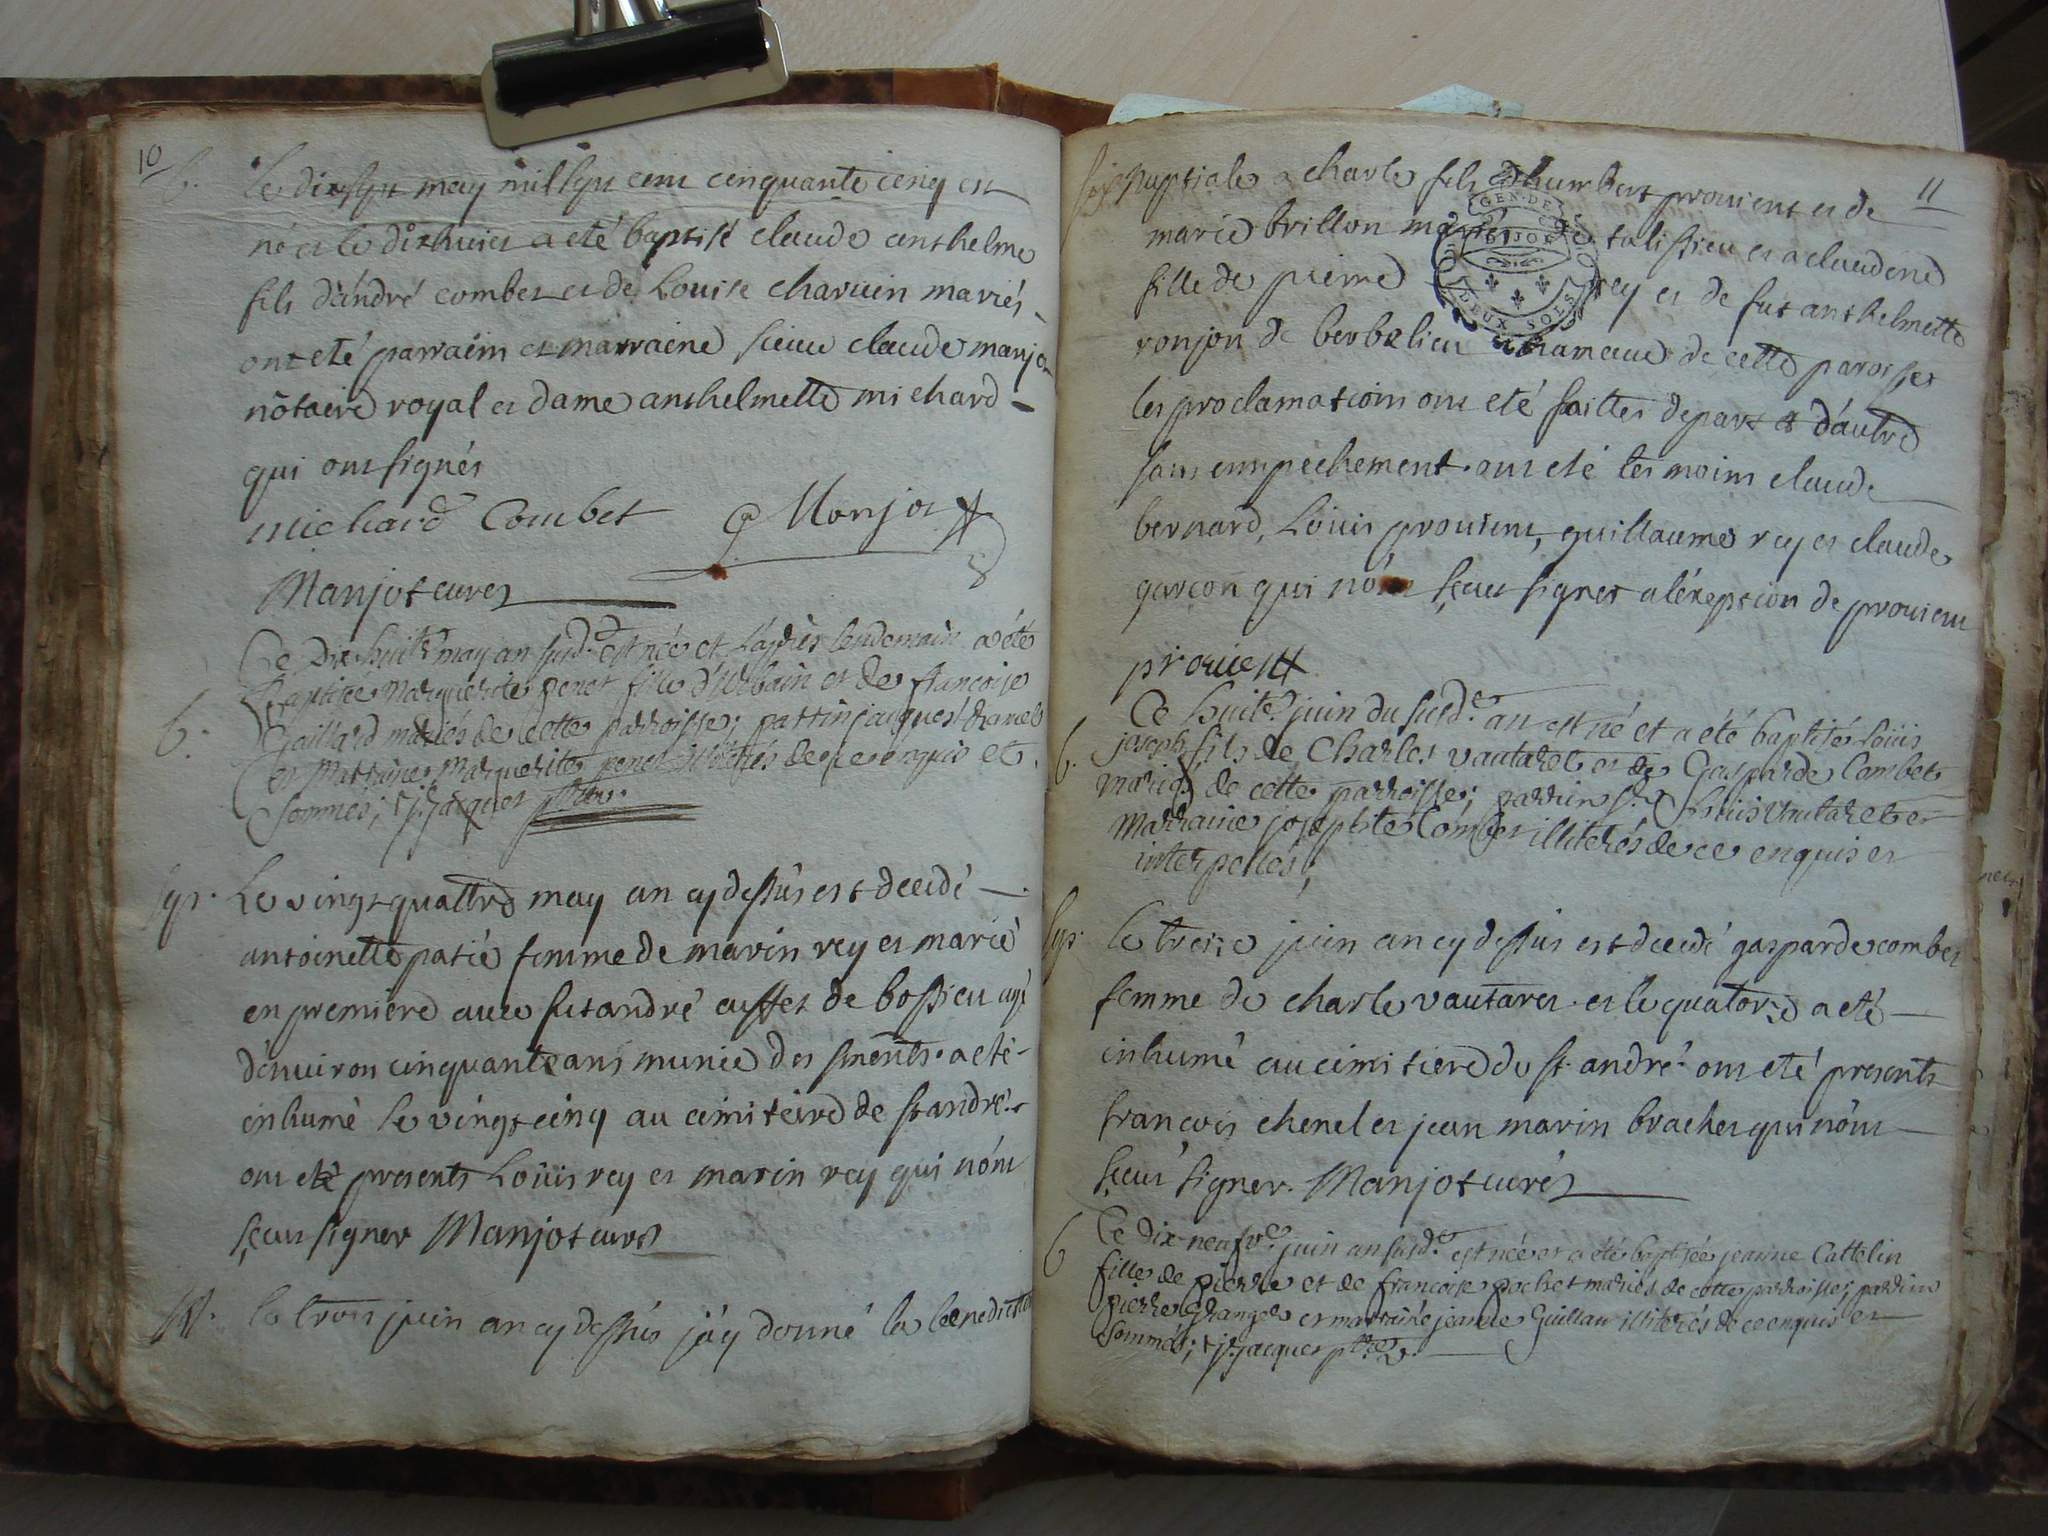 10
b. Le dixsept may mil sept cent cinquante cinq est
né et le dixhuict a eté baptisé claude anthelme
fils d'andré combet et de Louise charvin mariés
ont eté parrain et marraine sieur claude manjot
notaire royal et dame anthelmette michard
qui ont signés
michard Combet Manjot
Manjot curé
Ce Dix huit.e may an susd.e est née et L'apprès lendemain a été
b. Baptisée Marguérite penet fille d'Urbain et de françoise
Gaillard mariés de cette parroisse; parrin jacques
et Marraine Marguerite penet illitérés de ce enquis et
sommés; j. jacques ptre v.
sept. Le vingt quattre may an cy dessus est decedé
antoinette patié femme de marin rey et marié
en premiere avec fut andré cusset de bossieu agé
d'environ cinquante ans munie des sments a eté
inhumé le vingt cinq au cimiteire de st andré
ont eté presents Loüis rey et marin rey qui n'ont
sçeut signer Manjot curé
M. le trois juin an cy dessus j'ay donné la benediction
11
nuptiale a charle fils d'humbert provient et de
marie brillon mariés de talissieu et a claudine
fille de pierre rey et de fut anthelmette
ronjon de berbelieu hameau de cette paroisse
les proclamations ont eté faittes de part et d'autre
sans empechement ont eté tesmoins claude
bernard, Loüis provient, guillaume rey et claude
garçon qui n'ont sçeut signer a l'éxeption de provient
provient
GEN. DE DIJON
DEUX SOLS
b. Ce huit.e juin du susd.e an est né et a été baptisé Loüis
joseph fils de Charles vautaret et de Gasparde Combet
mariés de cette parroisse; parrin Sr Loüis Vautaret et
Marraine josephte Combet illiterés de ce enquis et
interpellés;
sept. le treize juin an cy dessus est decedé gasparde combet
femme de charle vautaret et le quatorze a eté
inhumé au cimitiere de st andré ont eté presents
françois chenel et jean marin brachet qui n'ont
sçeut signer. Manjot curé
b Ce dix-neufv.e juin an susd.e est née et a été baptisée jeanne Cattelin
fille de pierre et de françoise pochet mariés de cette parroisse; parrin
pierre Grange et marraine jeanne Guillau illiterés de ce enquis et
sommés; j. jacques ptre v.